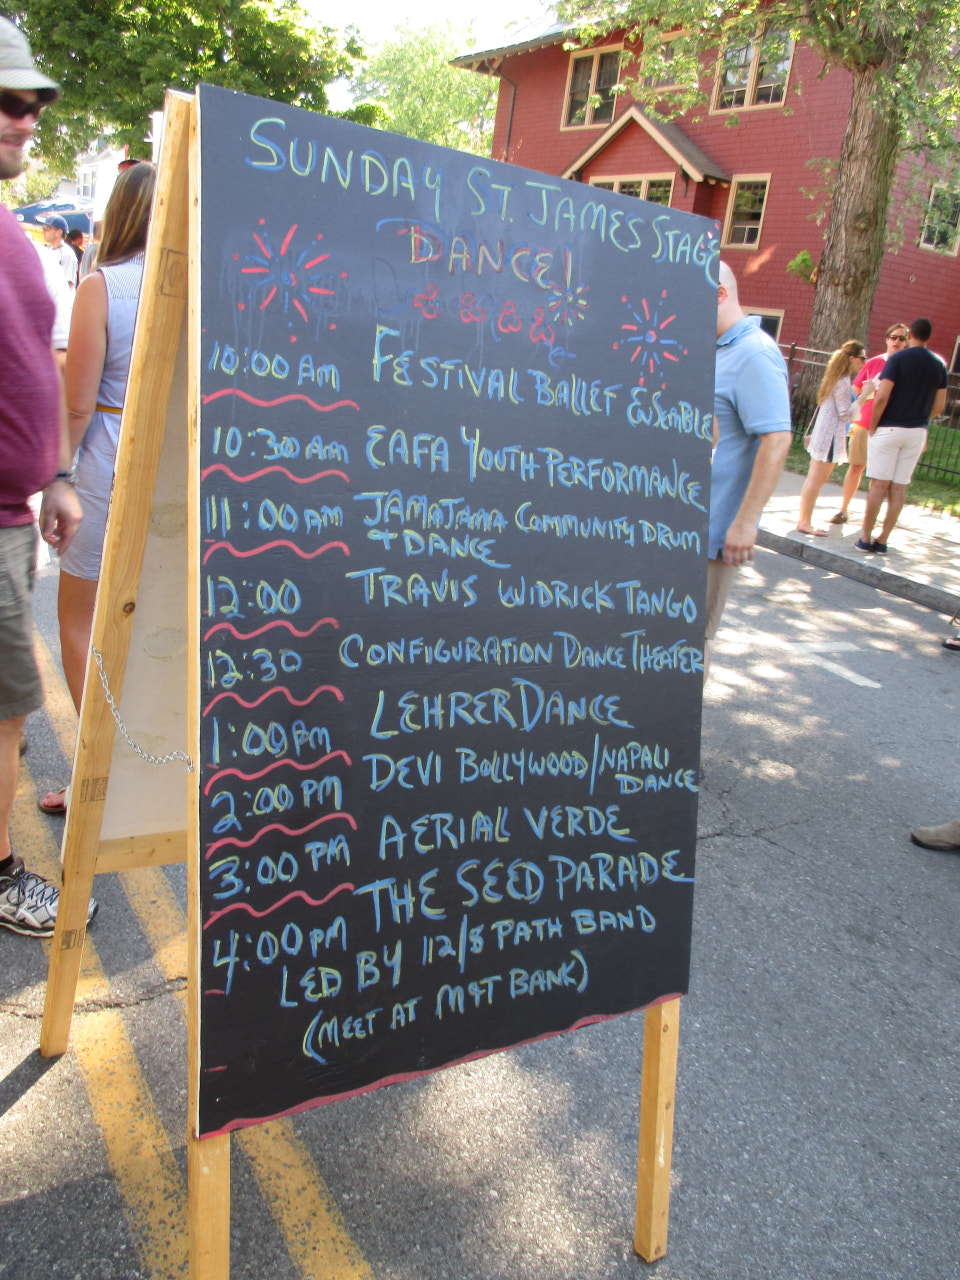 SUNDAY ST. JAMES STAGE
DANCE!
10:00 AM FESTIVAL BALLET ENSEMBLE
10:30 AM EAFA YOUTH PERFORMANCE
11:00 AM JAMAJAMA COMMUNITY DRUM
+ DANCE
12:00 TRAVIS WIDRICK TANGO
12:30 CONFIGURATION DANCE THEATER
1:00 PM LEHRERDANCE
2:00 PM DEVI BOLLYWOOD/NAPALI
DANCE
3:00 PM AERIAL VERDE
4:00 PM THE SEED PARADE
LED BY 12/8 PATH BAND
(MEET AT M&T BANK)